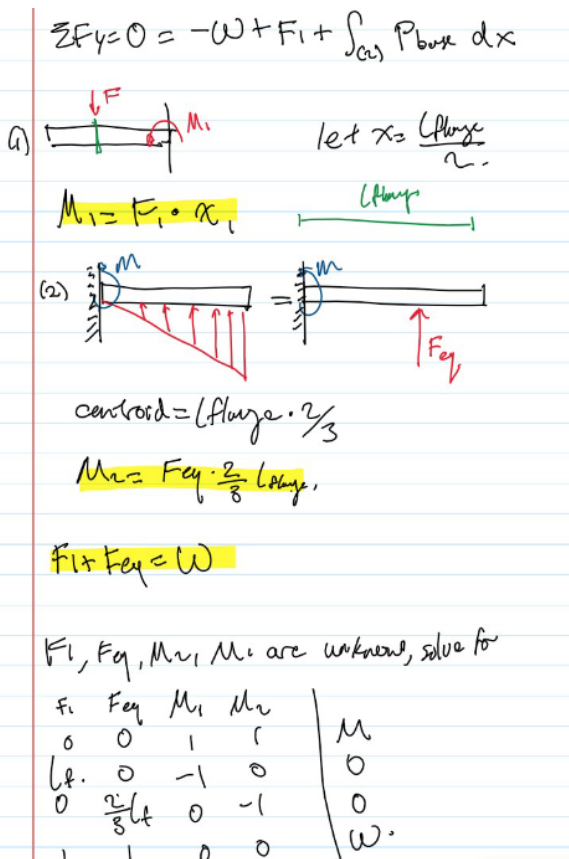 ΣFy=0 = -W + F1 + ∫(2) Pbase dx
(1) F M1
let x = Lflange/2.
M1 = F1 · x1
Lflange
(2) M = M Feq
centroid = Lflange · 2/3
M2 = Feq · 2/3 Lflange.
F1 + Feq = W
F1, Feq, M2, M1 are unknowns, solve for
F1 Feq M1 M2
0 0 1 1 | M
Lf. 0 -1 0 | 0
0 2/3 Lf 0 -1 | 0
1 1 0 0 | W.